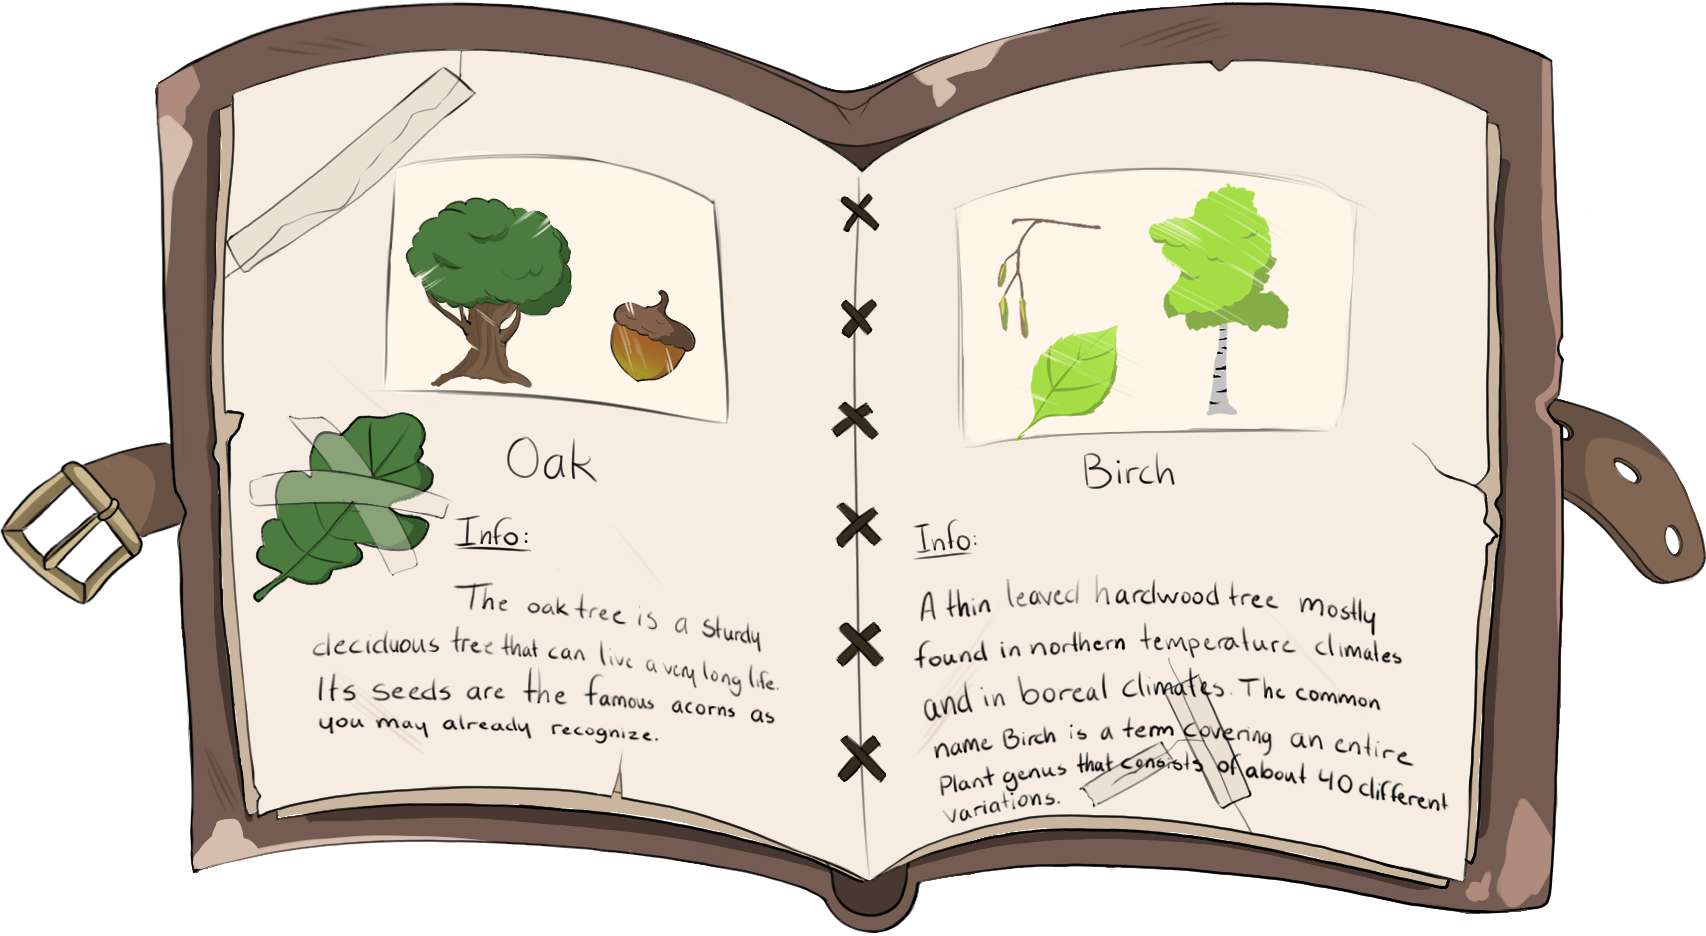 Oak
Info:
The oak tree is a sturdy
deciduous tree that can live a very long life.
Its seeds are the famous acorns as
you may already recognize.
Birch
Info:
A thin leaved hardwood tree mostly
found in northern temperature climates
and in boreal climates. The common
name Birch is a term covering an entire
Plant genus that consists of about 40 different
variations.